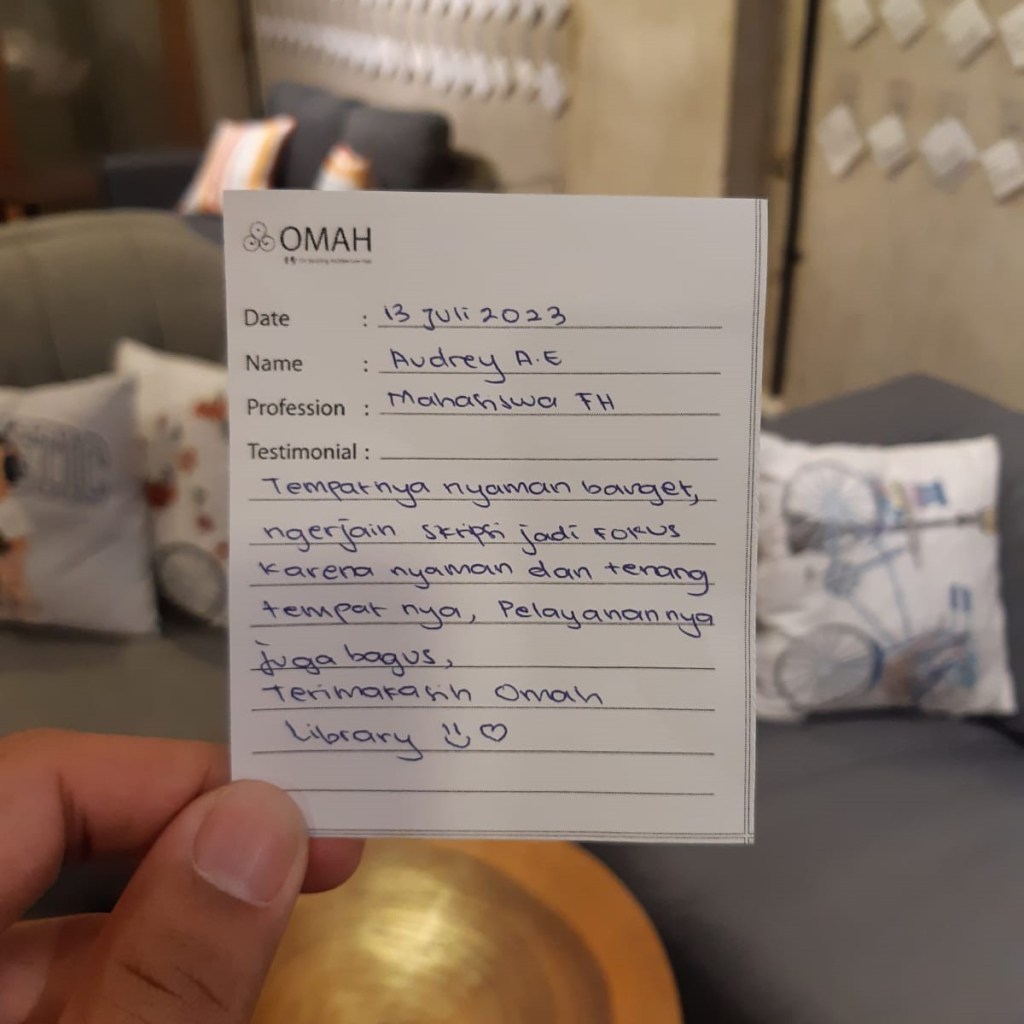 OMAH
Date : 13 Juli 2023
Name : Audrey A.E
Profession : Mahasiswa FH
Testimonial :
Tempatnya nyaman banget,
ngerjain skripsi jadi fokus
karena nyaman dan terang
tempat nya, Pelayanannya
juga bagus,
Terimakasih Omah
Library